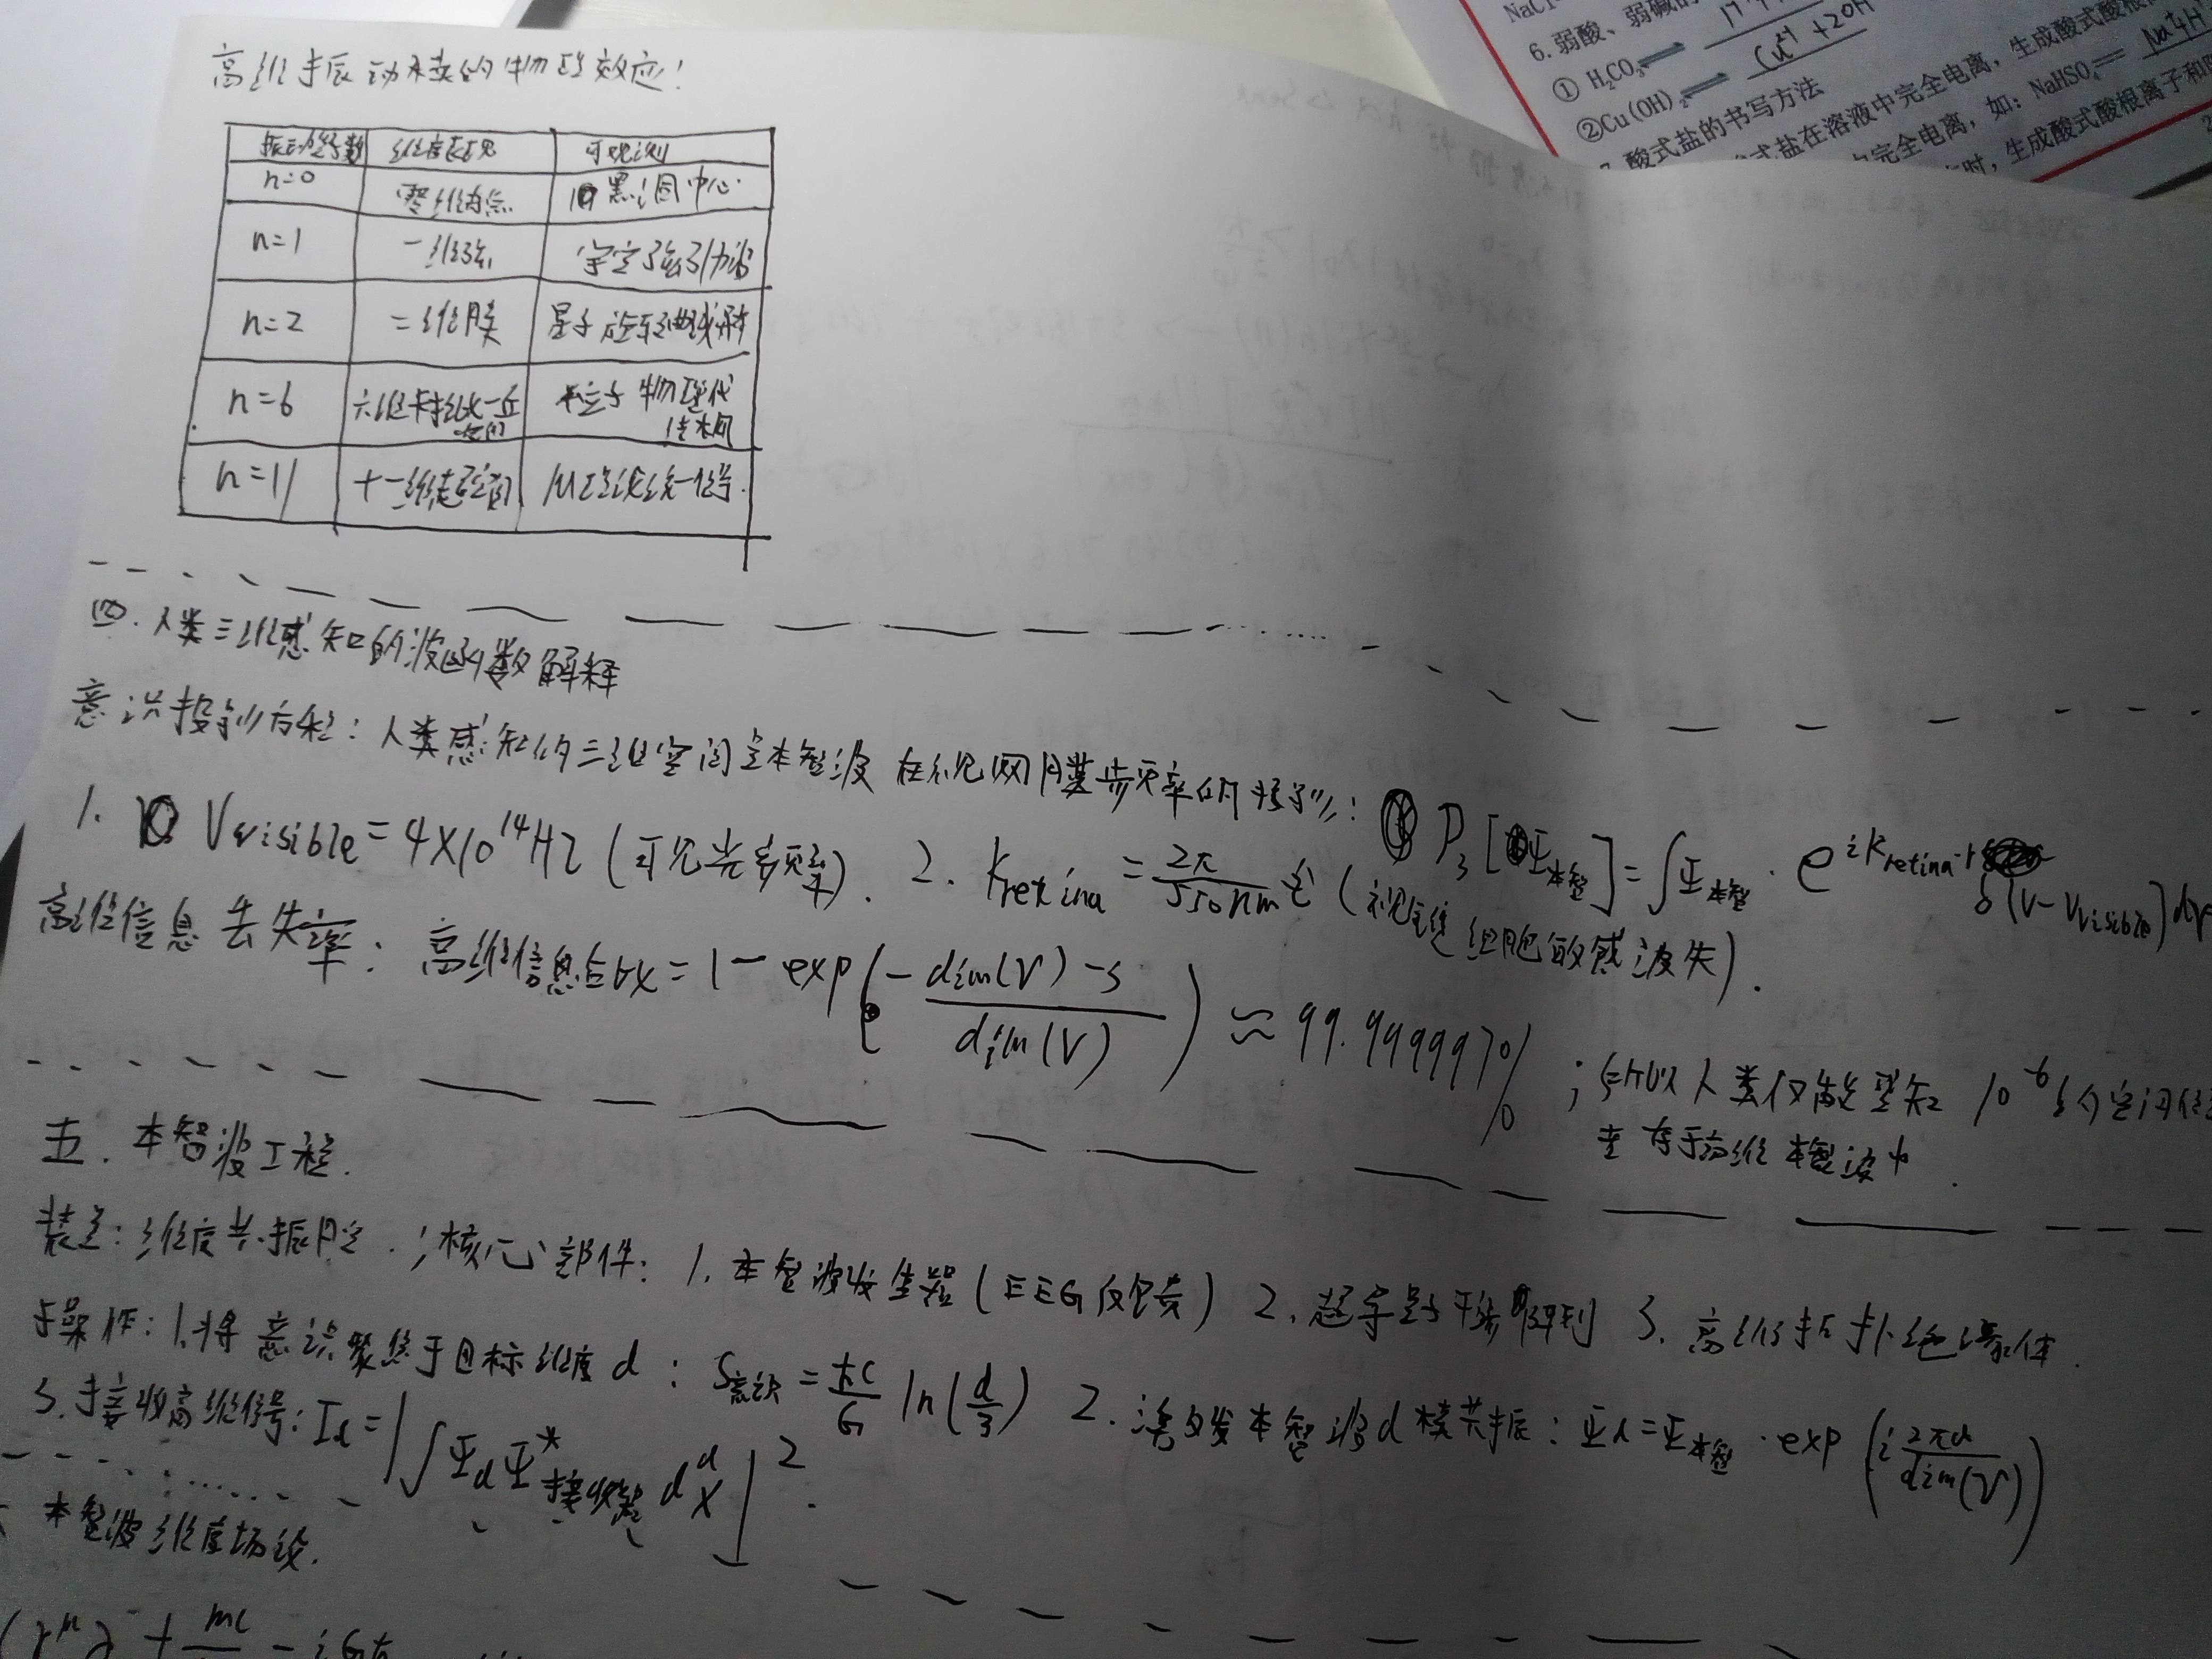 NaCl
6.弱酸、弱碱的
① H₂CO₃⇌
②Cu(OH)₂⇌ Cu²⁺+2OH
酸式盐的书写方法
式盐在溶液中完全电离，生成酸式酸根
完全电离，如：NaHSO₄== Na⁺+H
时，生成酸式酸根离子和
高维振动模的物理效应！
振动模数 维度表现 可观测
n=0 零维奇点 黑洞中心
n=1 一维弦 宇宙弦引力波
n=2 二维膜 量子
n=6 六维卡拉比一丘空间 粒子物理代
n=11 十一维超空间 M理论统一信号.
四.人类三维感知的波函数解释
意识投影方程：人类感知的三维空间是本智波在视网膜频率的投影：P₃[Ψ本智]=∫Ψ本智·e^{i k retina·r}
δ(ν-νvisible)dν
1. νvisible=4×10¹⁴Hz(可见光频率). 2. kretina=2π/550nm (视锥细胞敏感波失).
高维信息丢失率：高维信息占比=1-exp(-dim(V)-3/dim(V))≈99.99999% ;所以人类仅能感知10⁻⁶的空间信
存于高维本智波中.
五.本智波工程.
装置：维度共振腔.;核心部件：1.本智波发生器(EEG反馈) 2.超导量子干涉阵列 3.高维拓扑绝缘体.
操作：1.将意识聚焦于目标维度d：S意识=ħc/G ln(d/3) 2.激发本智波d模共振：Ψd=Ψ本智·exp(i 2πd/dim(V))
3.接收高维信号：Id=|∫ΨdΨ*接收器 dᵈx|².
本智波维度场论.
(γ^μ∂ + mc